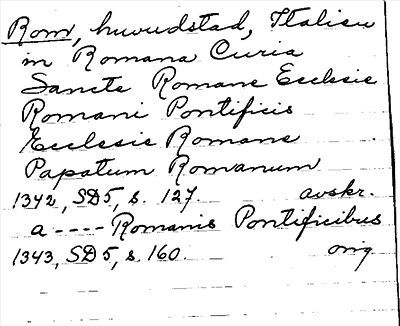 Rom, huvudstad, Italien
in Romana Curia
Sancte Romane Ecclesie
Romani Pontificis
Ecclesie Romane
Papatum Romanum
1342, SD5, s. 127. avskr.
a ---- Romanis Pontificibus
1343, SD5, s. 160. orig